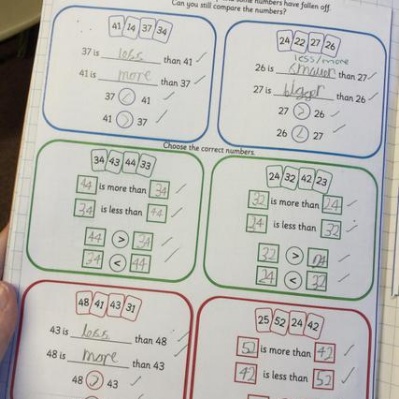 some numbers have fallen off.
Can you still compare the numbers?
41 14 37 34
37 is less than 41
41 is more than 37
37 < 41
41 > 37
24 22 27 26
less/more
26 is smaller than 27
27 is bigger than 26
27 > 26
26 < 27
Choose the correct numbers.
34 43 44 33
44 is more than 34
34 is less than 44
44 > 34
34 < 44
24 32 42 23
32 is more than 24
24 is less than 32
32 > 24
24 < 32
48 41 43 31
43 is less than 48
48 is more than 43
48 > 43
25 52 24 42
52 is more than 42
42 is less than 52